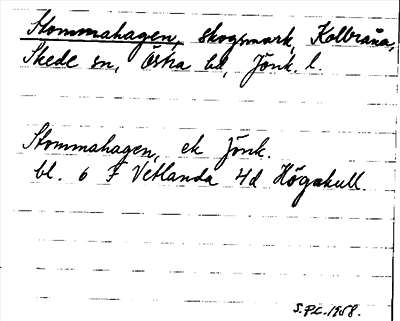 Stommahagen, skogsmark, Kolbråna,
Skede sn, Östra hd, Jönk. l.
Stommahagen, ek Jönk.
bl. 6 F Vetlanda 4d Högakull.
S.P.C. 1958.